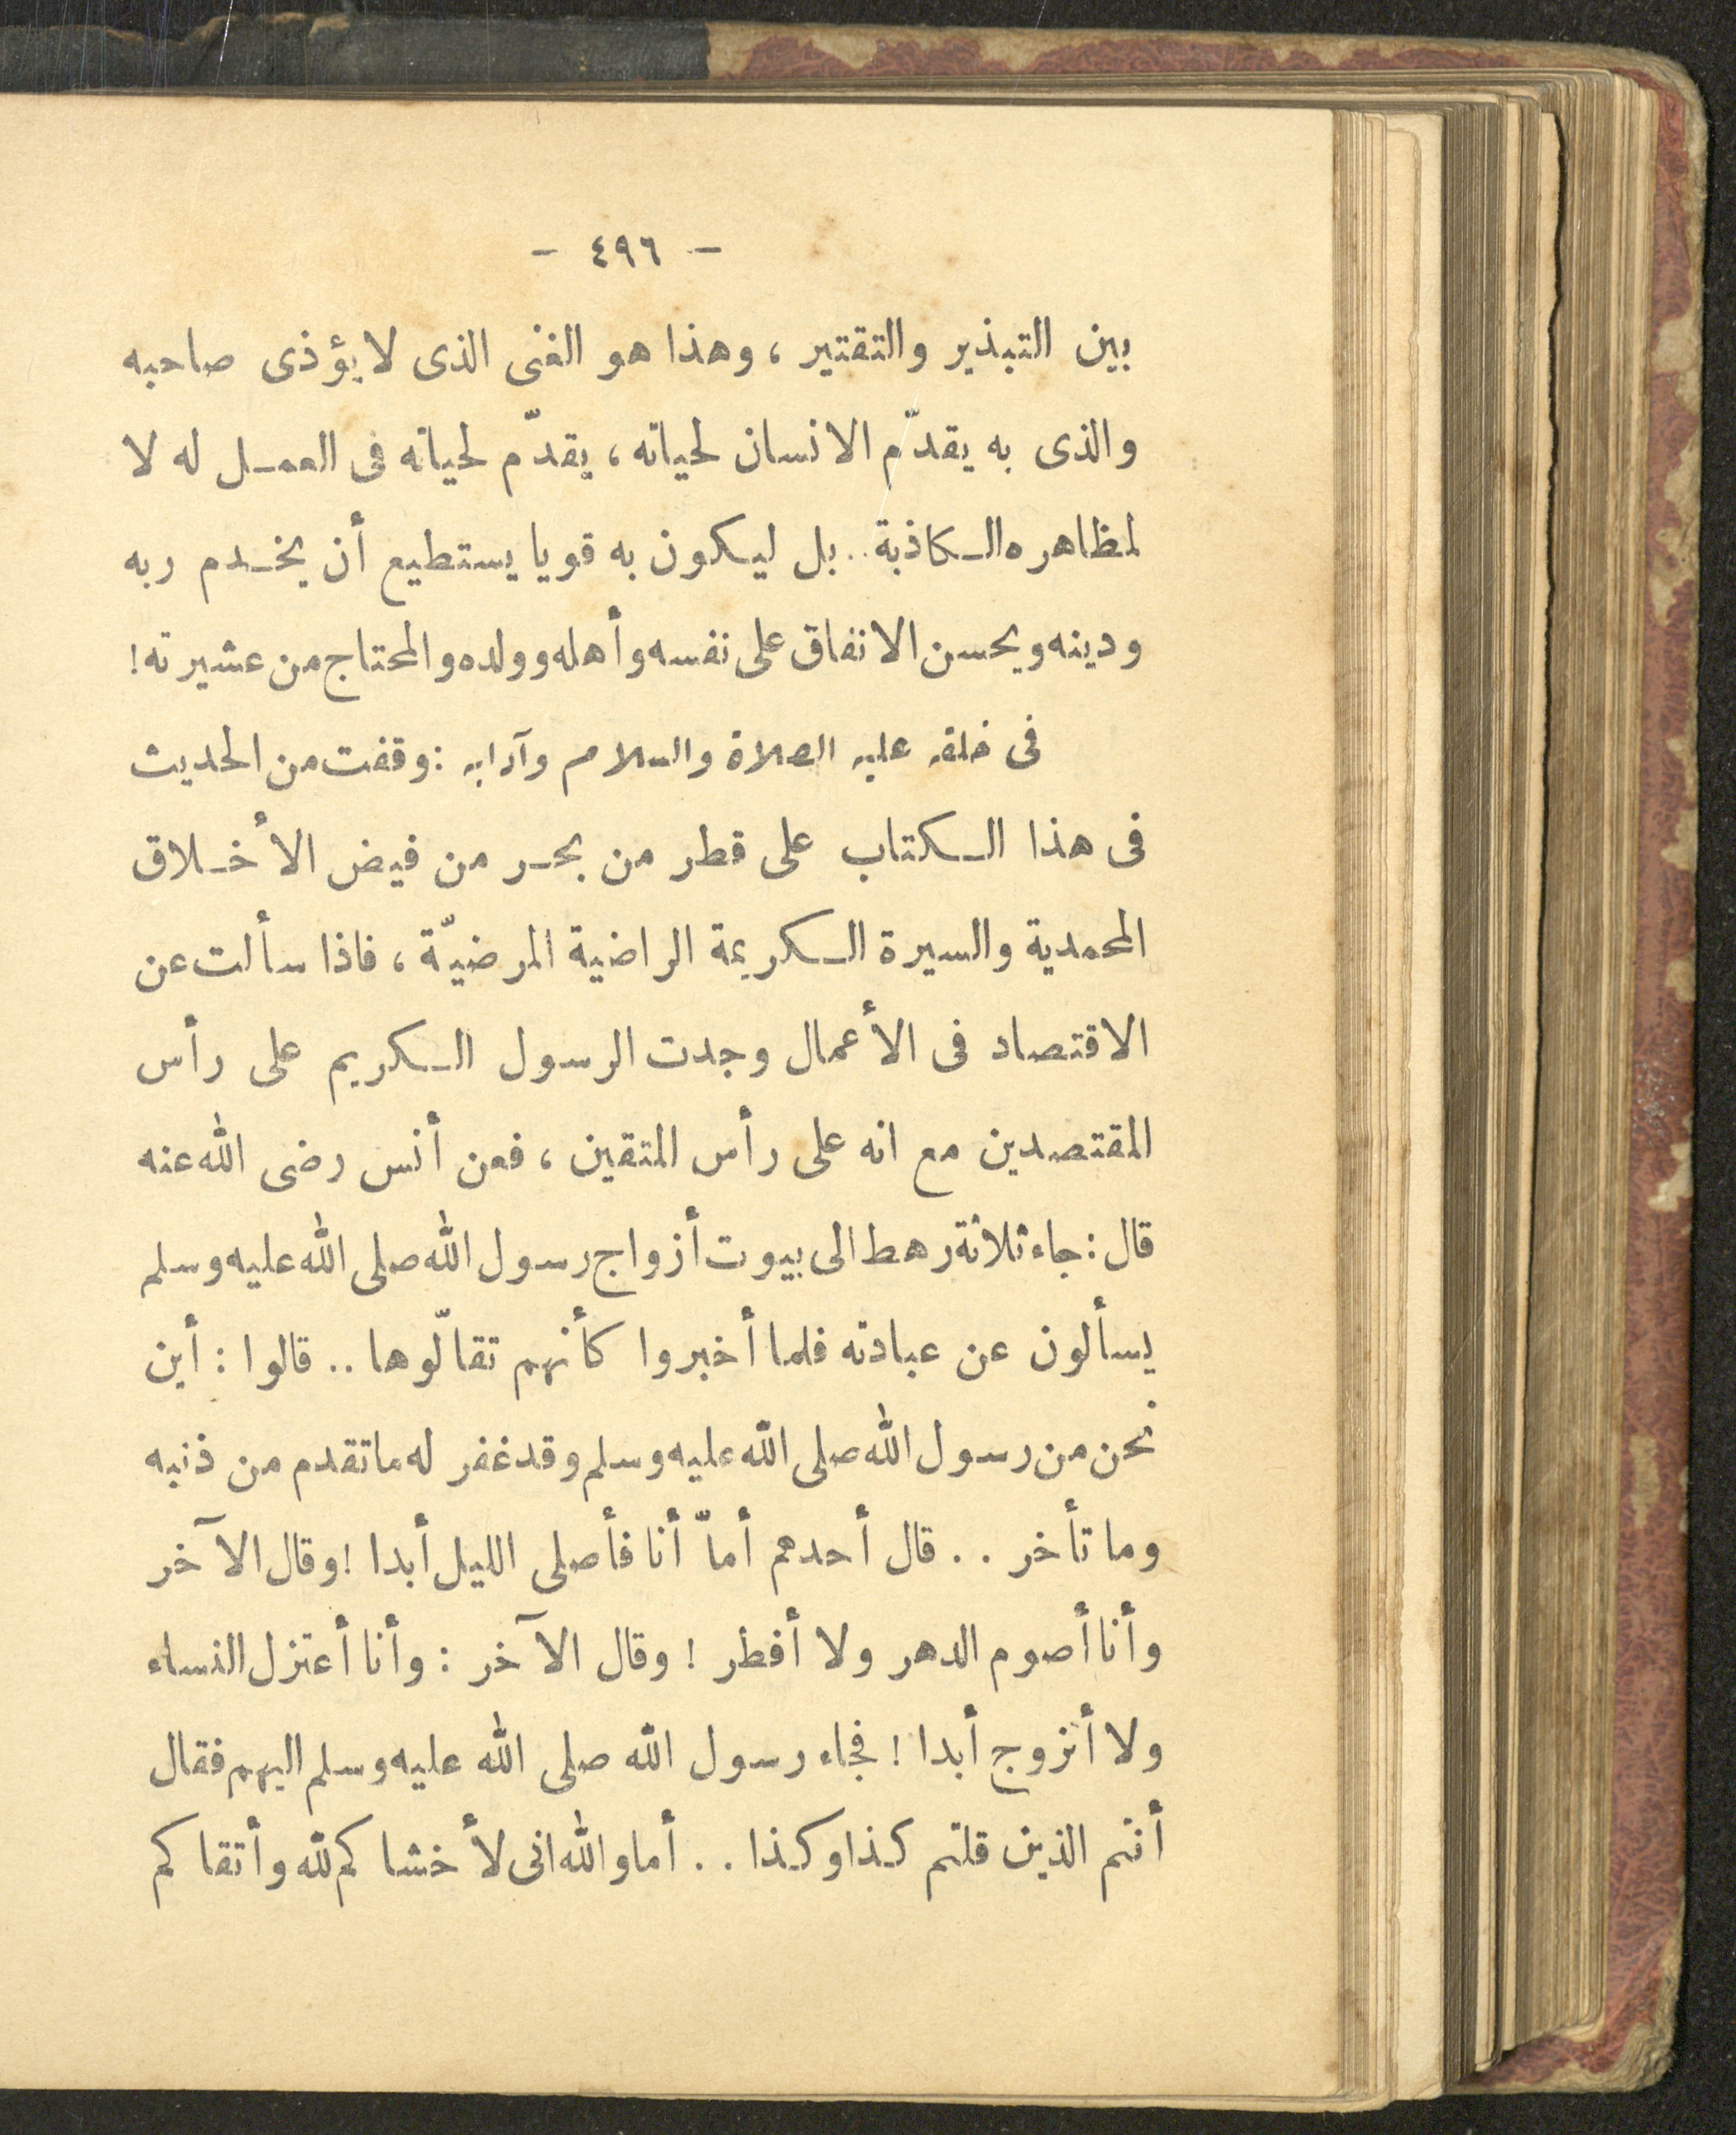 - ٤٩٦ -
بين التبذير والتقتير ، وهذا هو الغنى الذى لا يؤذى صاحبه
والذى به يقدّم الانسان لحياته ، يقدّم لحياته فى العمـل له لا
لمظاهره الـكاذبة .. بل ليـكون به قويا يستطيع أن يخـدم ربه
ودينه ويحسن الانفاق على نفسه وأهله وولده والمحتاج من عشيرته !
فى خلقه عليه الصلاة والسلام وآدابه : وقفت من الحديث
فى هذا الـكتاب على قطر من بحـر من فيض الأخـلاق
المحمدية والسيرة الـكريمة الراضية المرضيّة ، فاذا سألت عن
الاقتصاد فى الأعمال وجدت الرسول الـكريم على رأس
المقتصدين مع انه على رأس المتقين ، فعن أنس رضى الله عنه
قال : جاء ثلاثة رهط الى بيوت أزواج رسول الله صلى الله عليه وسلم
يسألون عن عبادته فلما أخبروا كأنهم تقالّوها .. قالوا : أين
نحن من رسول الله صلى الله عليه وسلم وقد غفر له ما تقدم من ذنبه
وما تأخر .. قال أحدهم أمّا أنا فأصلى الليل أبدا ! وقال الآخر
وأنا أصوم الدهر ولا أفطر ! وقال الآخر : وأنا أعتزل النساء
ولا أتزوج أبدا ! فجاء رسول الله صلى الله عليه وسلم اليهم فقال
أنتم الذين قلتم كذا وكذا .. أما والله انى لأخشاكم لله وأتقاكم